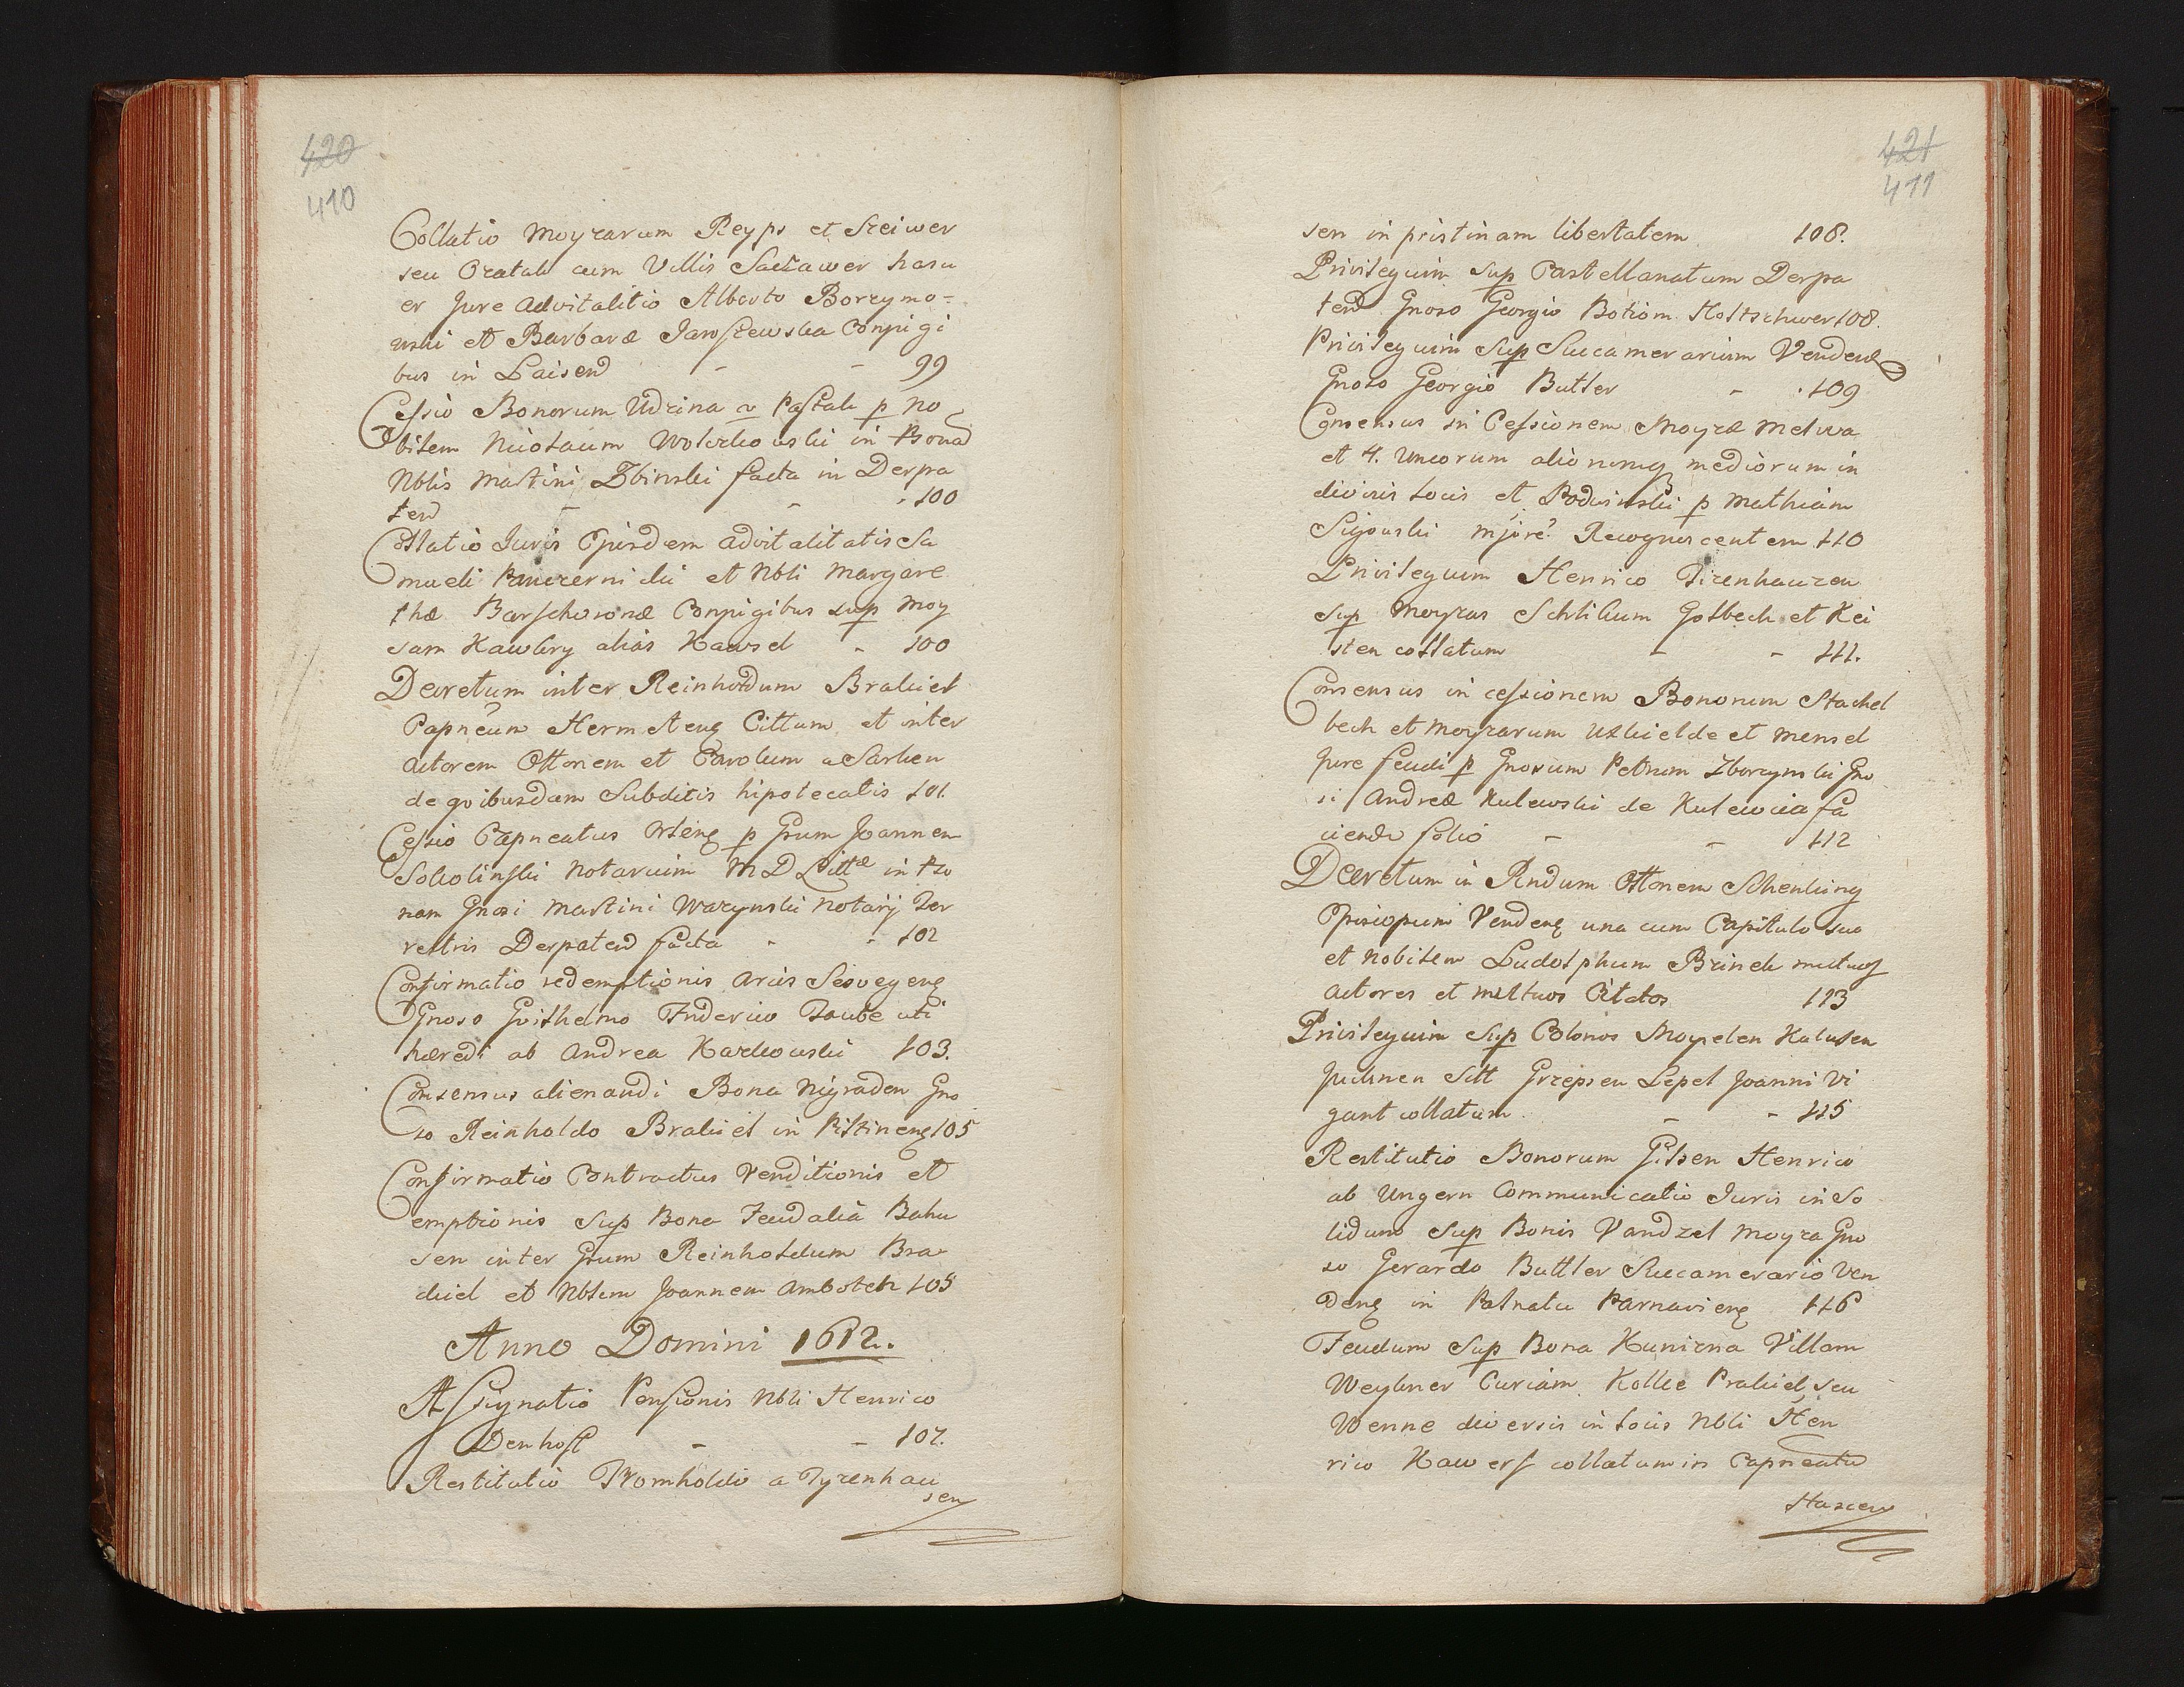 420
410
Collatio Moyzarum Reyps et Sceiwer
seu Oratah cum Villis Sackawer hasu
er Jure advitalitio Alberto Borzymo=
wski et Barbaræ Jarossewska Conjugi
bus in Laisen - - 99
Cessio Bonorum Udrina Pastah p No
bilem Nicolaum Wolchowski in Bona
Nblis Martini Zbinski facta in Derpa
ten - - 100
Collatio Juris Ejusdem advitalitatis Sa
mueli Pancerni cki et Nbli Margare
thæ Barschwonæ Conjugibus sup Moy
sam Kawkry alias Kawsel - 100
Decretum inter Reinholdum Brakiel
Capneum Herm Citum et inter
actorem Ottonem et Carolum a Sarken
de quibusdam Subditis hipotecatis 101.
Cessio Capneatus p Gsum Joannem
Sokolinski Notarium M D Littæ in Pso
nam Gnosi Martini Wazynski Notarij Ter
restris Derpaten facta - - 102
Confirmatio redemptionis arcis Sesvegen
Gnoso Guilhelmo Frederico Taube uti
hæredi ab Andrea Karlowski 103.
Consensus alienandi Bona Nigraden Gno
so Reinholdo Brakiel in Piltinen 105
Confirmatio Contractus Venditionis et
emptionis Sup Bona Feudalia Bahu
sen inter Gsum Reinholdum Bra
ckiel et Nblem Joannem Amboteh 105
Anno Domini 1612.
Assignatio Pensionis Nbli Henrico
Denhoff - - 107.
Restitutio Womholdo a Tyzenhau
sen
421
411
sen in pristinam libertatem 108.
Privilegium Sup Castellanatum Derpa
ten Gnoso Georgio Botiom Holtschwer 108.
Privilegium Sup Succamerarium Venden
Gnoso Georgio Butler - 109
Consensus in Cessionem Moyzæ Melwa
et 4. Uncorum mediorum in
diversis locis et Podwinski p Mathiam
Sigowski Recognoscentem 110
Privilegium Henrico Tizenhauzen
Sup Moyzas Schlikum Golbech et Kei
sten collatum - - 111.
Consensus in cessionem Bonorum Stackel
bech et Moyzarum Uzkielde et Mensel
Jure feudi p Gnosum Petrum Zborzynski Gno
si Andreæ Kulewski de Kulewcia fa
ciendo folio - - 112
Decretum in Rndum Ottonem Schenking
Episcopum Venden una cum Capitulo suo
et Nobilem Ludolphum Brinck mutuos
Actores et mutuos Citatos 113
Privilegium Sup Colonos Moyselen Kalusen
Juchnen Sitt Grzepsen Lepel Joanni Vi
gant collatum - - 115
Restitutio Bonorum Gilsen Henrico
ab Ungern Communicatio Juris in So
lidum Sup Bonis Vandzel Moyza Gno
so Gerardo Buttler Succamerario Ven
den in Palnatu Parnavien 116
Feudum Sup Bona Kunicna Villam
Weykner Curiam Kolke Prakiel, seu
Wenne diversis in locis Nbli Hen
rico Kawerf collatum in Capneatu
Hascen